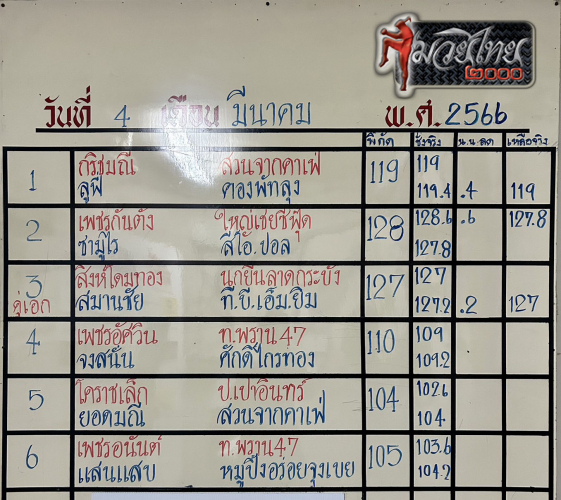 มวยไทย
๒๐๐๐
วันที่ 4 เดือน มีนาคม พ.ศ. 2566
พิกัด ชั่งจริง น.น.ลด เหลือจริง
1 กริชมณี สวนจากคาเฟ่ 119 119
ลูฟี่ คองพัทลุง 119.4 .4 119
2 เพชรกันตัง ใหญ่เชยซีฟู๊ด 128 128.6 .6 127.8
ซามูไร สีโอ.ปอล 127.8
3 สิงห์โดมทอง นกยีนลาดกระบัง 127 127
คู่เอก สมานชัย ที.บี.เอ็ม.ยิม 127.2 .2 127
4 เพชรอัศวิน ท.พราน47 110 109
จงสนั่น ศักดิ์ไกรทอง 109.2
5 โคราชเล็ก ป.เปาอินทร์ 104 102.6
ยอดมณี สวนจากคาเฟ่ 104
6 เพชรอนันต์ ท.พราน47 105 103.6
แสนแสบ หมูปิ้งอร่อยจุงเบย 104.2